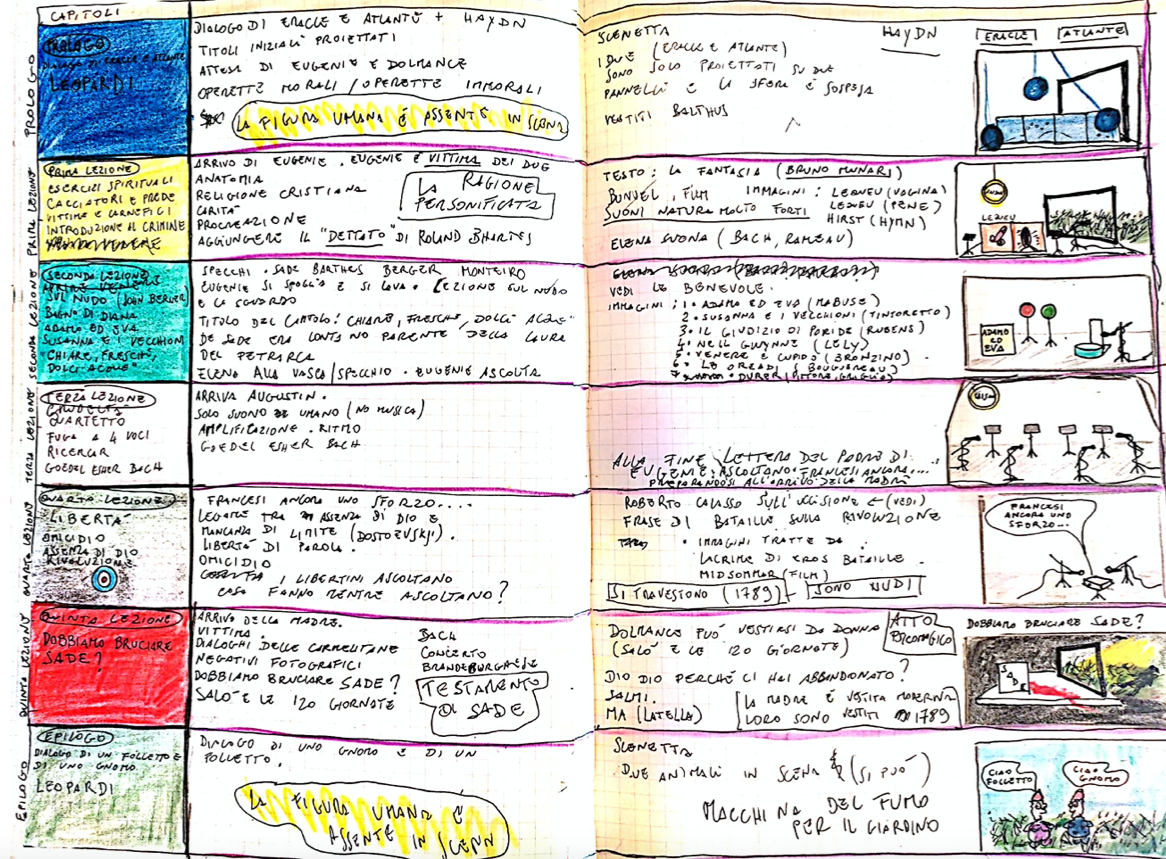 CAPITOLI
PROLOGO
PROLOGO
DIALOGO DI ERACLE E ATLANTE
LEOPARDI
DIALOGO DI ERACLE E ATLANTE + HAYDN
TITOLI INIZIALI PROIETTATI
ATTESA DI EUGENIE E DOLMANCE
OPERETTE MORALI / OPERETTE IMMORALI
LA FIGURA UMANA È ASSENTE IN SCENA
SCENETTA
HAYDN
I DUE (ERACLE E ATLANTE)
SONO SOLO PROIETTATI SU DUE
PANNELLI E LA SFERA È SOSPESA
VESTITI BALTHUS
ERACLE
ATLANTE
PRIMA LEZIONE
PRIMA LEZIONE
ESERCIZI SPIRITUALI
CACCIATORI E PREDE
VITTIME E CARNEFICI
INTRODUZIONE AL CRIMINE
ARRIVO DI EUGENIE. EUGENIE È VITTIMA DEI DUE
ANATOMIA
RELIGIONE CRISTIANA
CARITA'
PROCREAZIONE
AGGIUNGERE IL "DETTATO" DI ROLAND BHARTES
LA RAGIONE
PERSONIFICATA
TESTO: LA FANTASIA (BRUNO MUNARI)
BUNUEL, FILM IMMAGINI: LEQUEU (VAGINA)
LEQEU (PENE)
SUONI NATURA MOLTO FORTI HIRST (HYMN)
ELENA SUONA (BACH, RAMEAU)
LEQUEU
SECONDA LEZIONE
SECONDA LEZIONE
SUL NUDO (JOHN BERGER)
BAGNO DI DIANA
ADAMO ED EVA
SUSANNA E I VECCHIONI
"CHIARE, FRESCHE,
DOLCI ACQUE"
SPECCHI. SADE BARTHES BERGER MONTEIRO
EUGENIE SI SPOGLIA E SI LAVA. LEZIONE SUL NUDO
E LO SGUARDO
TITOLO DEL CAPITOLO: CHIARE, FRESCHE, DOLCI ACQUE"
DE SADE ERA LONTANO PARENTE DELLA LAURA
DEL PETRARCA
ELENA ALLA VASCA/SPECCHIO. EUGENIE ASCOLTA
VEDI LE BENEVOLE.
IMMAGINI: 1. ADAMO ED EVA (MABUSE)
2. SUSANNA E I VECCHIONI (TINTORETTO)
3. IL GIUDIZIO DI PARIDE (RUBENS)
4. NELL GWYNNE (LELY)
5. VENERE E CUPIDO (BRONZINO)
6. LE OREADI (BOUGUEREAU)
DURER (PITTORE, GRIGLIA)
ADAMO
ED
EVA
TERZA LEZIONE
TERZA LEZIONE
QUARTETTO
FUGA A 4 VOCI
RICERCAR
GOEDEL ESHER BACH
ARRIVA AUGUSTIN.
SOLO SUONO UMANO (NO MUSICA)
AMPLIFICAZIONE. RITMO
GOEDEL ESHER BACH
ALLA FINE LETTERA DEL PADRE DI
EUGENIE. ASCOLTANO FRANCESI ANCORA...
PREPARANDOSI ALL'ARRIVO DELLA MADRE
QUARTA LEZIONE
QUARTA LEZIONE
LIBERTA'
OMICIDIO
ASSENZA DI DIO
RIVOLUZIONE
FRANCESI ANCORA UNO SFORZO....
LEGAME TRA ASSENZA DI DIO E
MANCANZA DI LIMITE (DOSTOEVSKIJ).
LIBERTA' DI PAROLA.
OMICIDIO
I LIBERTINI ASCOLTANO
COSA FANNO MENTRE ASCOLTANO?
ROBERTO CALASSO SULL'UCCISIONE ← (VEDI)
FRASE DI BATAILLE SULLA RIVOLUZIONE
IMMAGINI TRATTE DA:
LACRIME DI EROS BATAILLE
MIDSOMMAR (FILM)
SI TRAVESTONO (1789) - SONO NUDI
FRANCESI
ANCORA UNO
SFORZO...
QUINTA LEZIONE
QUINTA LEZIONE
DOBBIAMO BRUCIARE
SADE?
ARRIVO DELLA MADRE.
VITTIMA.
DIALOGHI DELLE CARMELITANE
NEGATIVI FOTOGRAFICI
DOBBIAMO BRUCIARE SADE?
SALO' E LE 120 GIORNATE
BACH
CONCERTO
BRANDEBURGHESE
TESTAMENTO
DI SADE
DOLMANCE PUO' VESTIRSI DA DONNA
(SALO' E LE 120 GIORNATE)
DIO DIO PERCHÉ CI HAI ABBANDONATO?
SALMI.
MA (LATELLA)
ATTO
PSICOMAGICO
LA MADRE È VESTITA MODERNA
LORO SONO VESTITI 1789
DOBBIAMO BRUCIARE SADE?
SADE
EPILOGO
EPILOGO
DIALOGO DI UN FOLLETTO E
DI UNO GNOMO
LEOPARDI
DIALOGO DI UNO GNOMO E DI UN
FOLLETTO.
LA FIGURA UMANA È
ASSENTE IN SCENA
SCENETTA
DUE ANIMALI IN SCENA (SI PUÒ)
MACCHINA DEL FUMO
PER IL GIARDINO
CIAO
FOLLETTO
CIAO
GNOMO